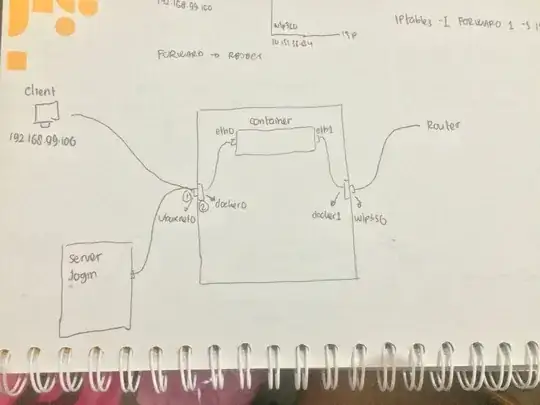 192.168.99.100
Iptables -I FORWARD 1 -i
FORWARD → REJECT
client
192.168.99.106
container
eth0
eth1
Router
①
②
vboxnet0
docker0
docker1
server
login